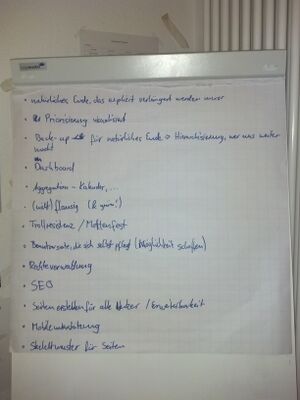 • natürliches Ende, das explizit verlängert werden muss
• Priorisierung
• Back-up für natürliches Ende Hierarchisierung, wer was weiter
macht
• Dashboard
• Aggregation – Kalender, ...
• flauschig (&
• Trollresistenz / Mottenfest
• die sich selbst pflegt (Möglichkeit schaffen)
• Rechteverwaltung
• SEO
• Seiten erstellen für alle / Erweiterbarkeit
•
• Skelettmuster für Seiten